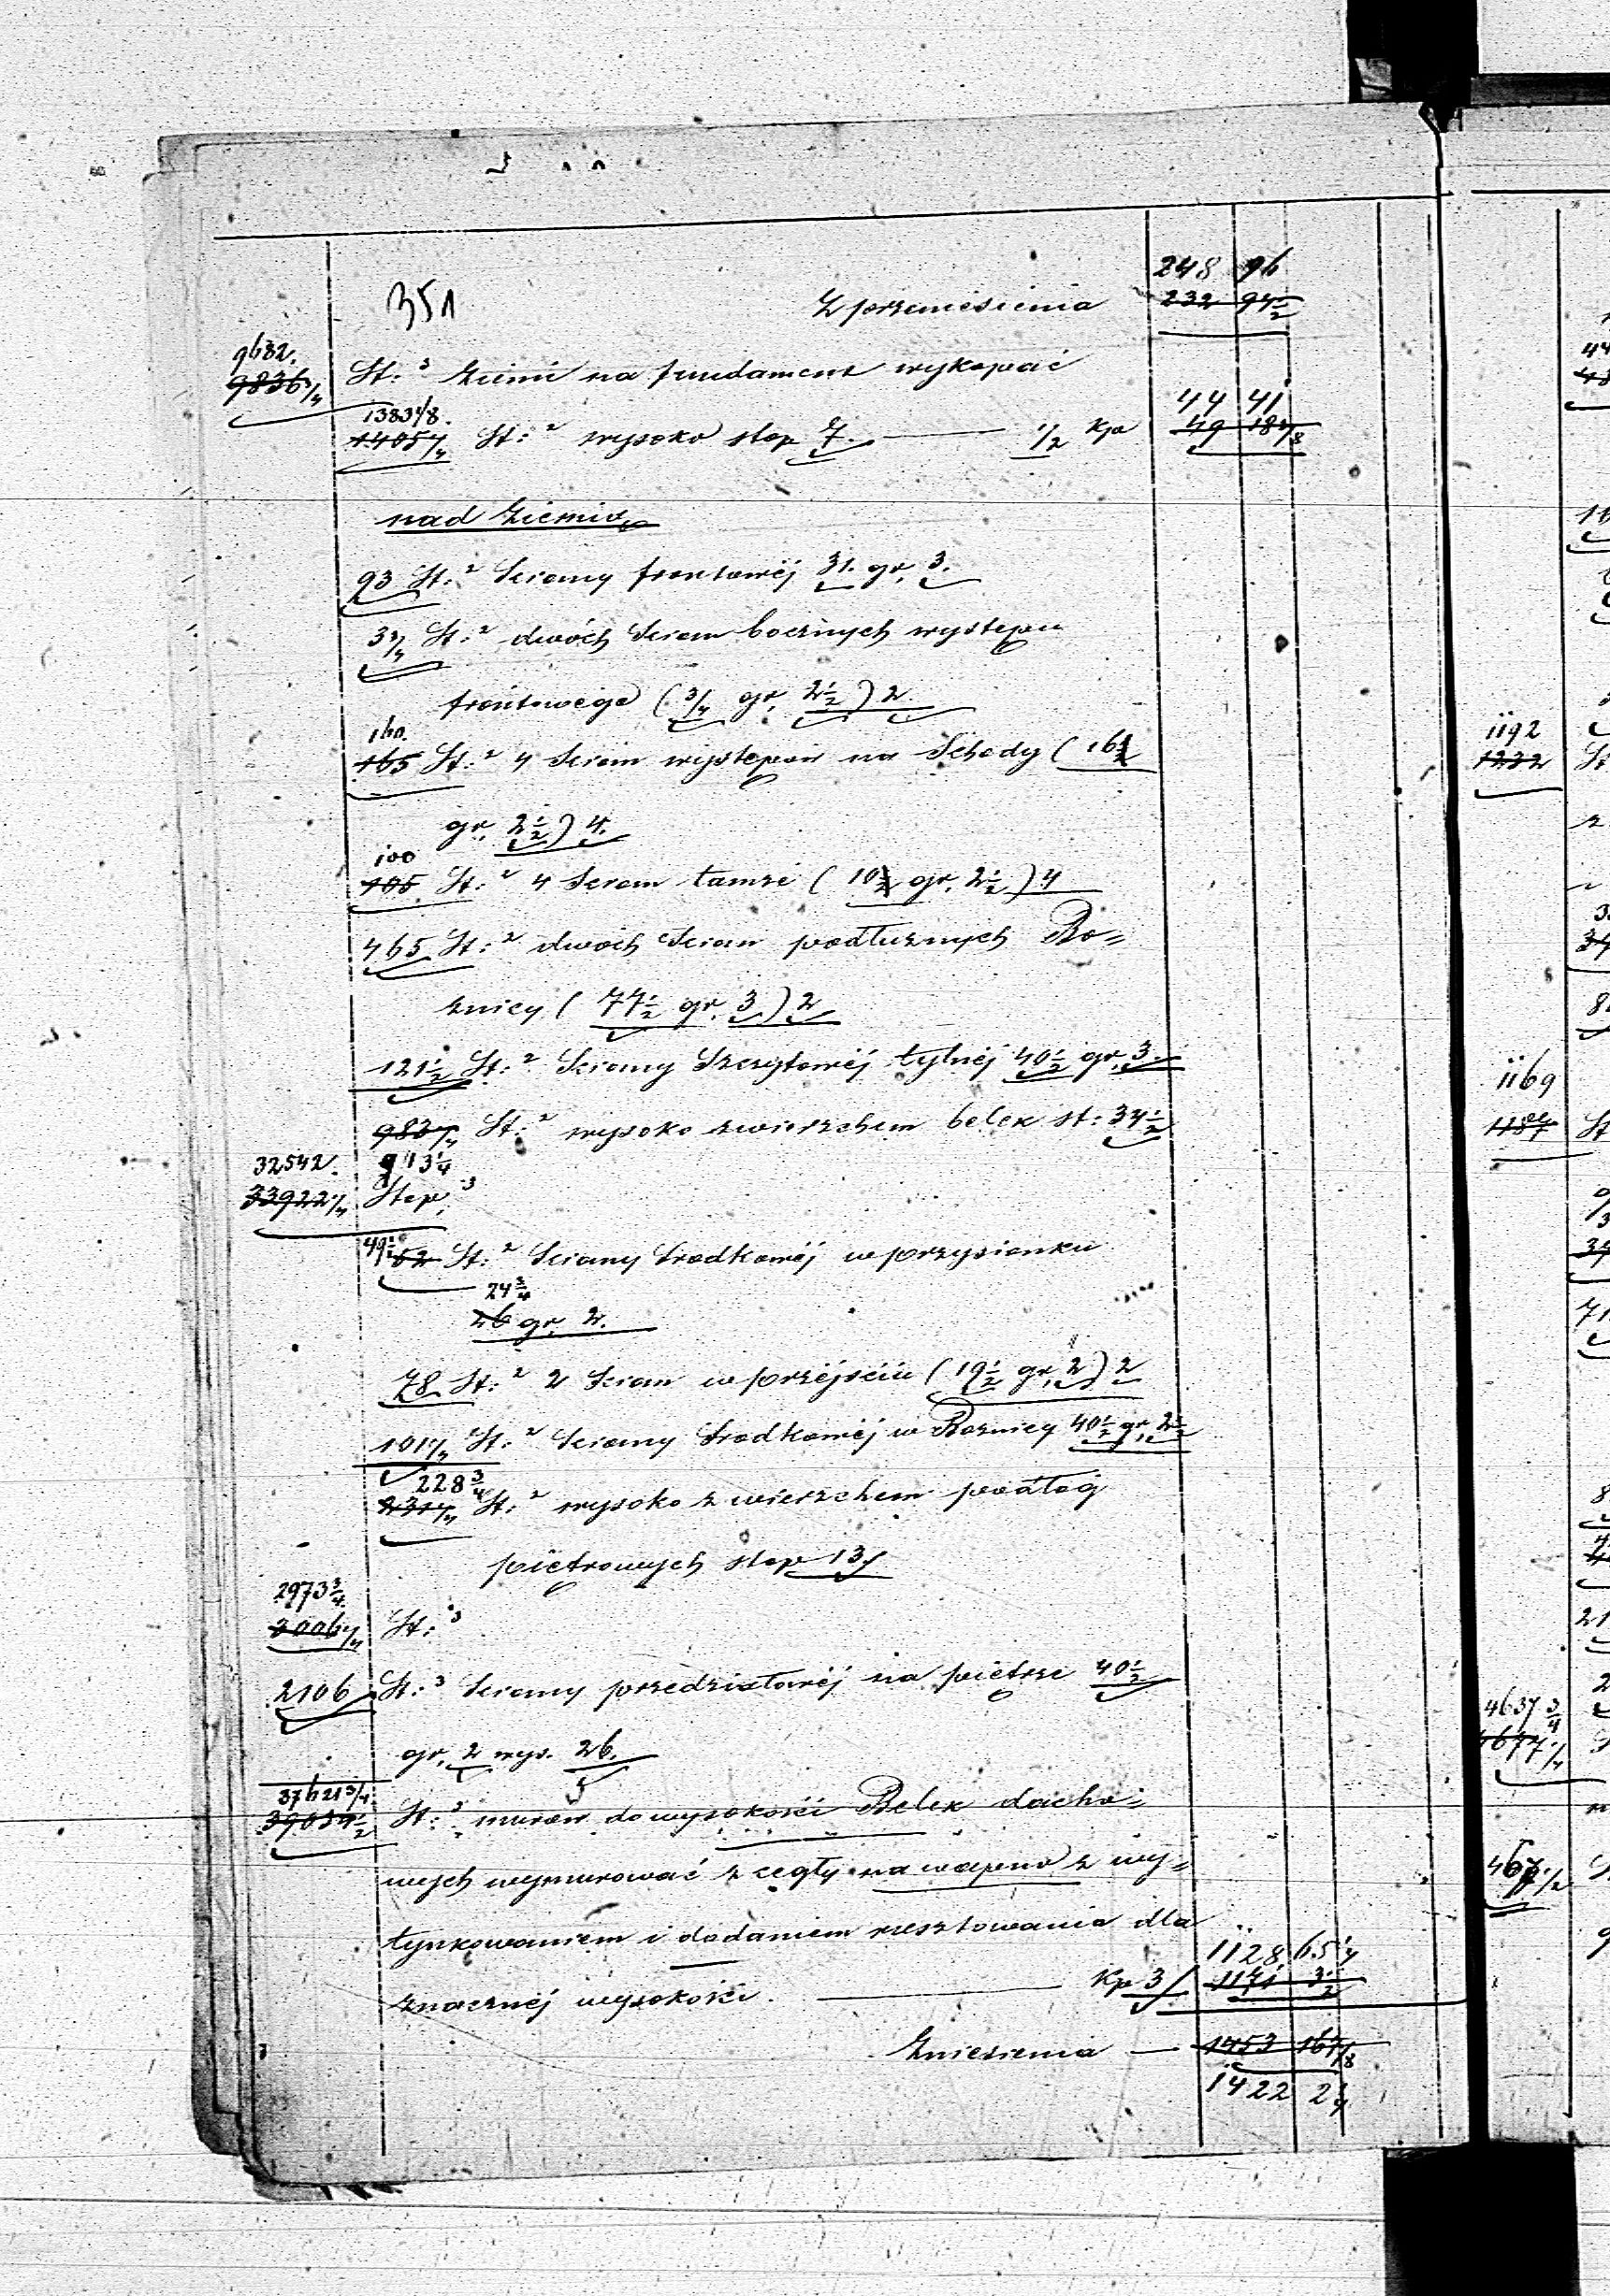 351
248 96
Z przeniesienia 232 94½
9682.
9836¾ St:³ Ziemi na fundament wykopać
1383⅛. 44 41
1405¼ St:² wysoko stop 7. — ½ Kp 49 18⅜
nad Ziemią
93 St:² Sciany frontowéj 31. gr. 3.
3¾ St:² dwóch Scian bocznych występu
frontowego (¾ gr. 2½) 2.
160.
165 St:² 4 Scian występów na Schody (16½
gr. 2½) 4.
100
105 St:² 4 Scian tamże (10½ gr. 2½) 4
465 St:² dwóch Scian podłużnych Bo=
żnicy (77½ gr. 3) 2
121½ St:² Sciany Szczytowéj tylnéj 40½ gr. 3.
983¼ St:² wysoko zwierzchem belek st: 34½
32542. 943¼
33922¼ Stop³
49½ 52 St:² Sciany Srodkowéj w przysionku
24¾
26 gr. 2.
78 St:² 2 Scian w przéjściu (19½ gr. 2) 2
101¼ St:² Sciany Srodkowéj w Boznicy 40½ gr. 2½
228¾
231¼ St:² wysoko z wierzchem podłóg
piętrowych stop 13/
2973¾
3006¼ St:³
2106 St:³ Sciany przedziałowéj na piętrze 40½
gr. 2 wys. 26.
37621¾
39034½ St:³ murów do wysokości Belek dacho=
wych wymurować z cegły na wapno z wy=
tynkowaniem i dodaniem rusztowania dla
1128 65¼
znacznéj wysokości. — Kp 3/ 1171 3½
Zniesienia — 1453 16⅞
1422 2¼
44
1192
1232 St
1169
1187 St
4637¾
4677¼
467½